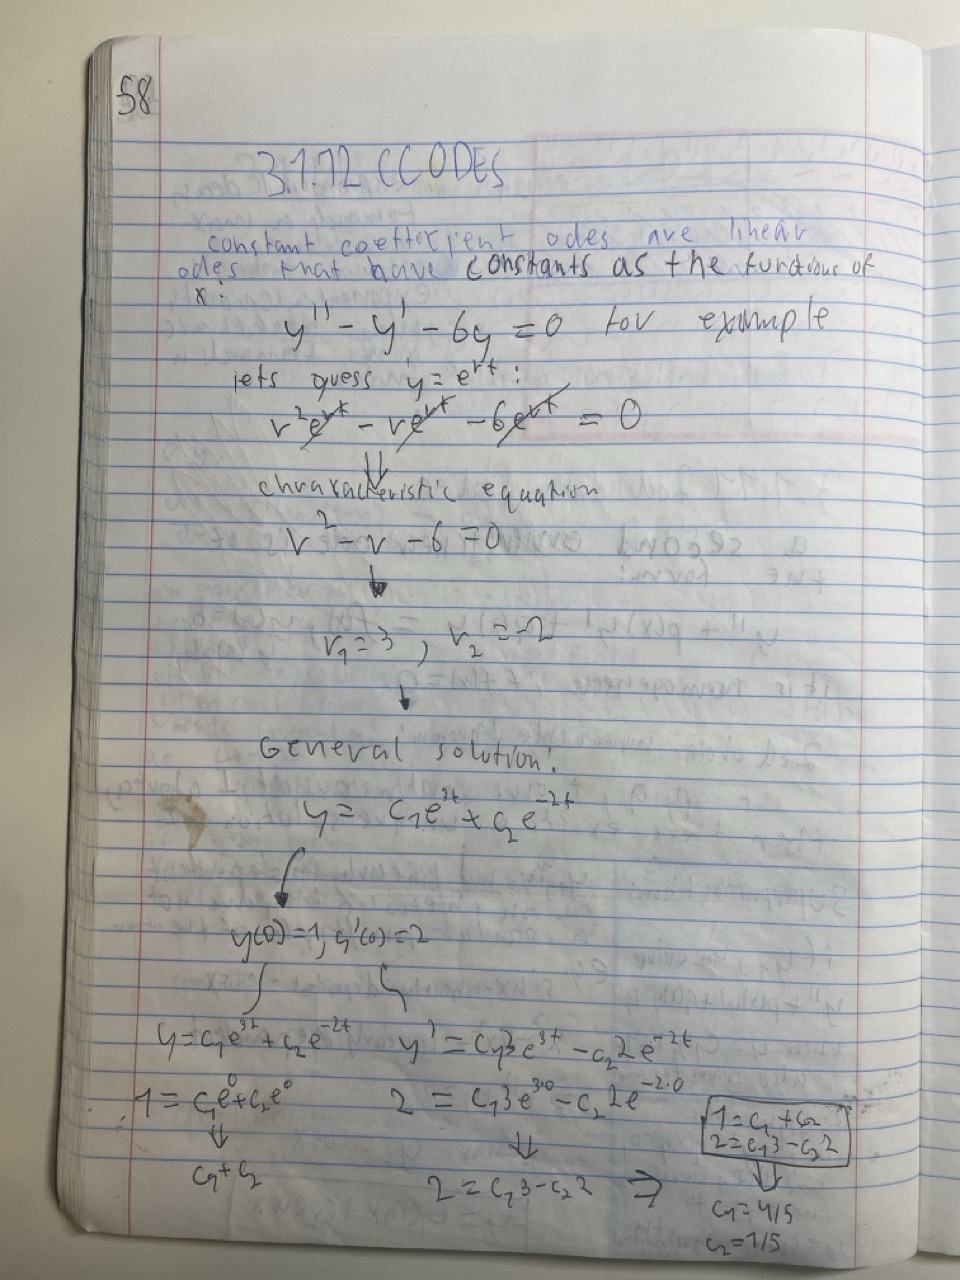 58
3.1.12 CCODES
constant coefficient odes are linear
odes that have constants as the functions of
x:
y'' - y' - 6y = 0 for example
lets guess y = e^rt :
r^2e^rt - re^rt - 6e^rt = 0
⇓
chraracteristic equation
r^2 - r - 6 = 0
↓
r1 = 3 , r2 = -2
↓
General solution:
y = c1e^3t + c2e^-2t
y(0) = 1, y'(0) = 2
y = c1e^3t + c2e^-2t y' = c13e^3t - c22e^-2t
1 = c1e^0 + c2e^0 2 = c13e^3·0 - c22e^-2·0
⇓ ⇓
c1 + c2 2 = c13 - c22 ⇒
1 = c1 + c2
2 = c13 - c22
⇓
c1 = 4/5
c2 = 1/5